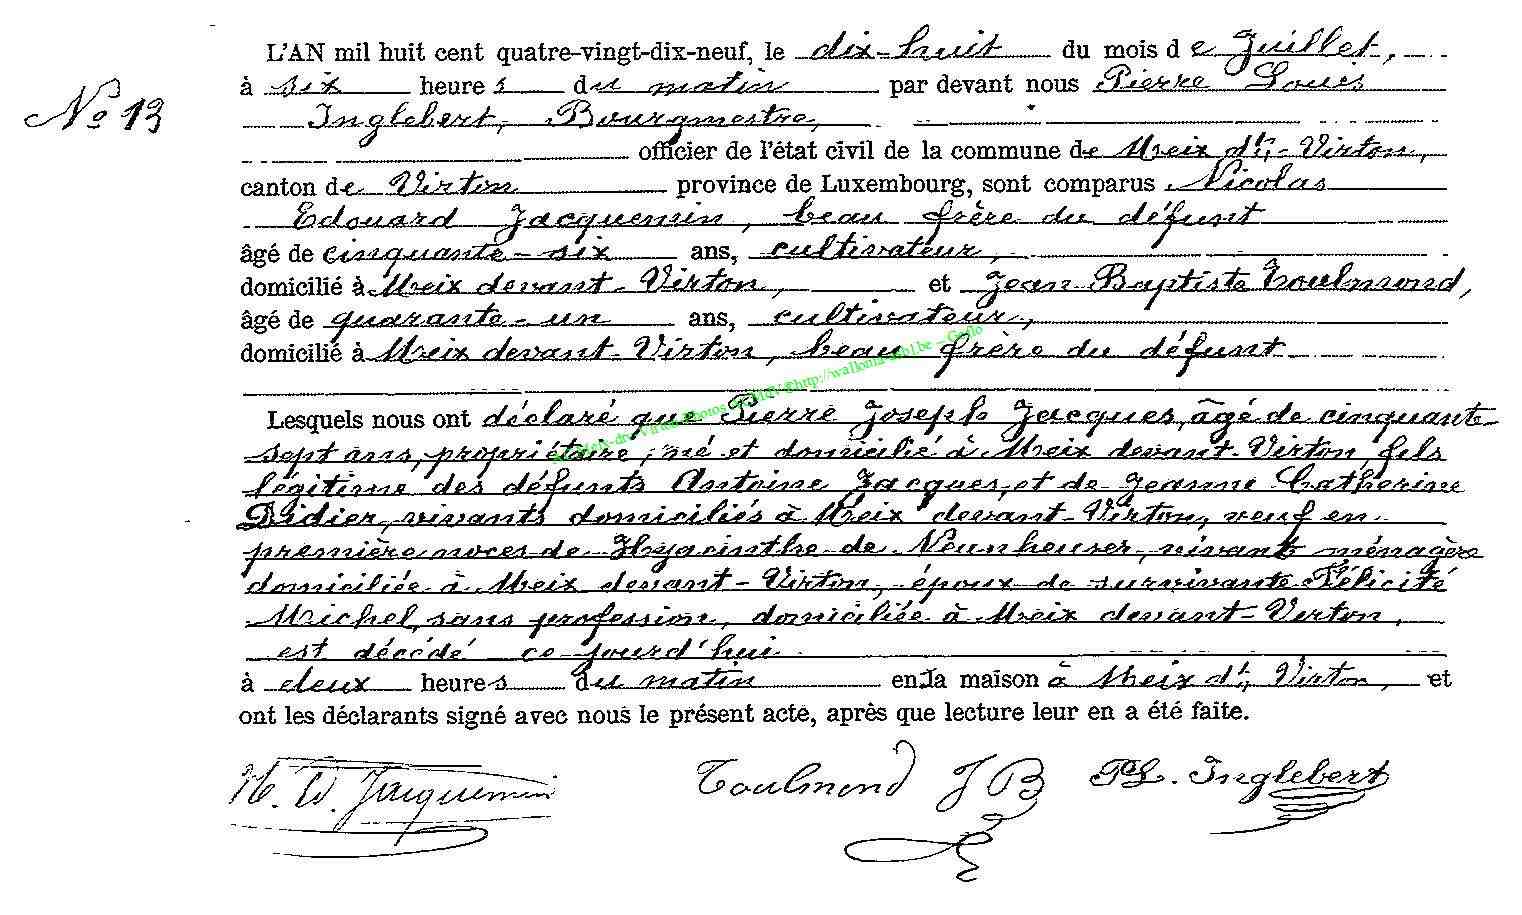 L'AN mil huit cent quatre-vingt-dix-neuf, le dix-huit du mois de Juillet,
à six heures du matin par devant nous Pierre Louis
N° 13
Inglebert, Bourgmestre,
officier de l'état civil de la commune de Meix dt,- Virton,
canton de Virton province de Luxembourg, sont comparus Nicolas
Edouard Jacquemin, beau frère du défunt
âgé de cinquante-six ans, cultivateur,
domicilié à Meix devant-Virton, et Jean Baptiste Toulmond,
âgé de quarante-un ans, cultivateur,
domicilié à Meix devant-Virton, beau frère du défunt
Lesquels nous ont déclaré que Pierre Joseph Jacques, âgé de cinquante-
sept ans, propriétaire, né et domicilié à Meix devant-Virton, fils
légitime des défunts Antoine Jacques, et de Jeanne Catherine
Didier, vivants domiciliés à Meix devant-Virton, veuf en
première noces de Hyacinthe de Neunheuser, vivant ménagère
domiciliée à Meix devant-Virton, époux de survivante Félicité
Michel, sans profession, domiciliée à Meix devant-Virton,
est décédé ce jourd'hui
à deux heures du matin en la maison à Meix dt, Virton, et
ont les déclarants signé avec nous le présent acte, après que lecture leur en a été faite.
N. E. Jacquemin Toulmond J B PL. Inglebert